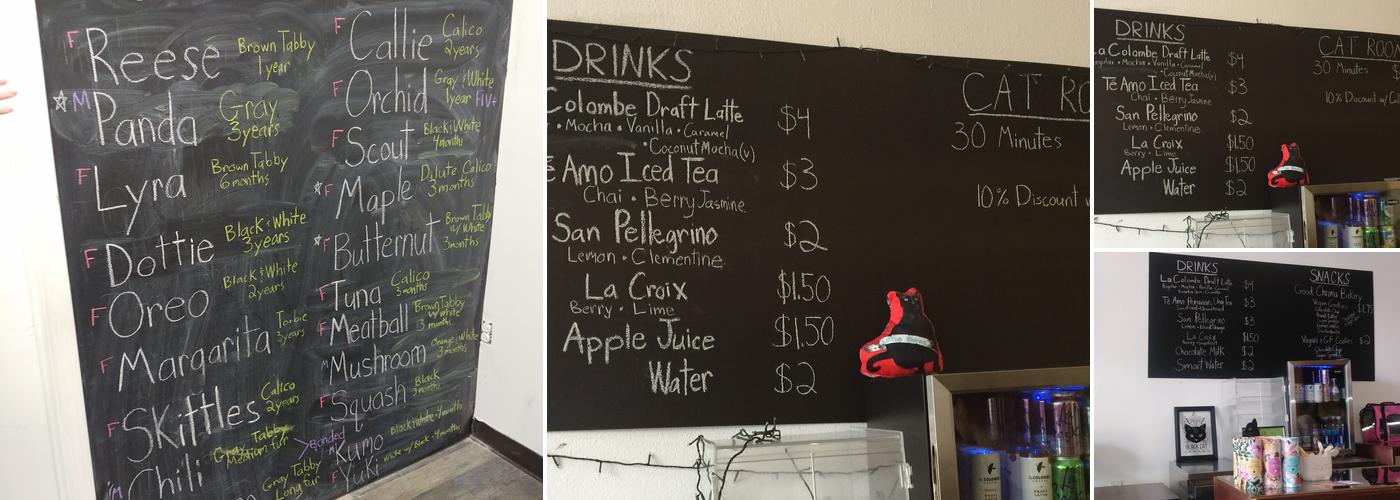 F Reese Brown Tabby
1 year
☆ M Panda Gray
3 years
F Lyra Brown Tabby
6 months
F Dottie Black & White
3 years
F Oreo Black & White
2 years
F Margarita Torbie
3 years
F Skittles Calico
2 years
M Chili Gray Tabby
Medium fur
Gray Tabby
Long fur
F Callie Calico
2 years
F Orchid Gray & White
1 year FIV+
F Scout Black & White
4 months
☆ F Maple Dilute Calico
3 months
☆ F Butternut Brown Tabby
w/ White
3 months
F Tuna Calico
3 months
F Meatball Brown Tabby
w/ White
3 months
M Mushroom Orange & White
3 months
F Squash Black
3 months
> Bonded
M Kumo Black & White 4 months
F Yuki White w/ Black 4 months
DRINKS
Colombe Draft Latte $4
• Mocha • Vanilla • Caramel
• Coconut Mocha (v)
Amo Iced Tea $3
Chai • Berry Jasmine
San Pellegrino $2
Lemon • Clementine
La Croix $1.50
Berry • Lime
Apple Juice $1.50
Water $2
CAT RO
30 Minutes
10% Discount w
DRINKS
La Colombe Draft Latte $4
Regular • Mocha • Vanilla • Caramel
• Coconut Mocha (v)
Te Amo Iced Tea $3
Chai • Berry Jasmine
San Pellegrino $2
Lemon • Clementine
La Croix $1.50
Berry • Lime
Apple Juice $1.50
Water $2
CAT ROO
30 Minutes
10% Discount w/
DRINKS
La Colombe Draft Latte $4
Te Amo Peruvian Chai Tea $3
San Pellegrino $3
Lemon • Blood Orange
La Croix $1.50
Chocolate Milk $2
Smart Water $2
SNACKS
Good Chroma Bakery
Vegan Cookies $1.75
Vegan & GF Cookies $2
BLACK CAT